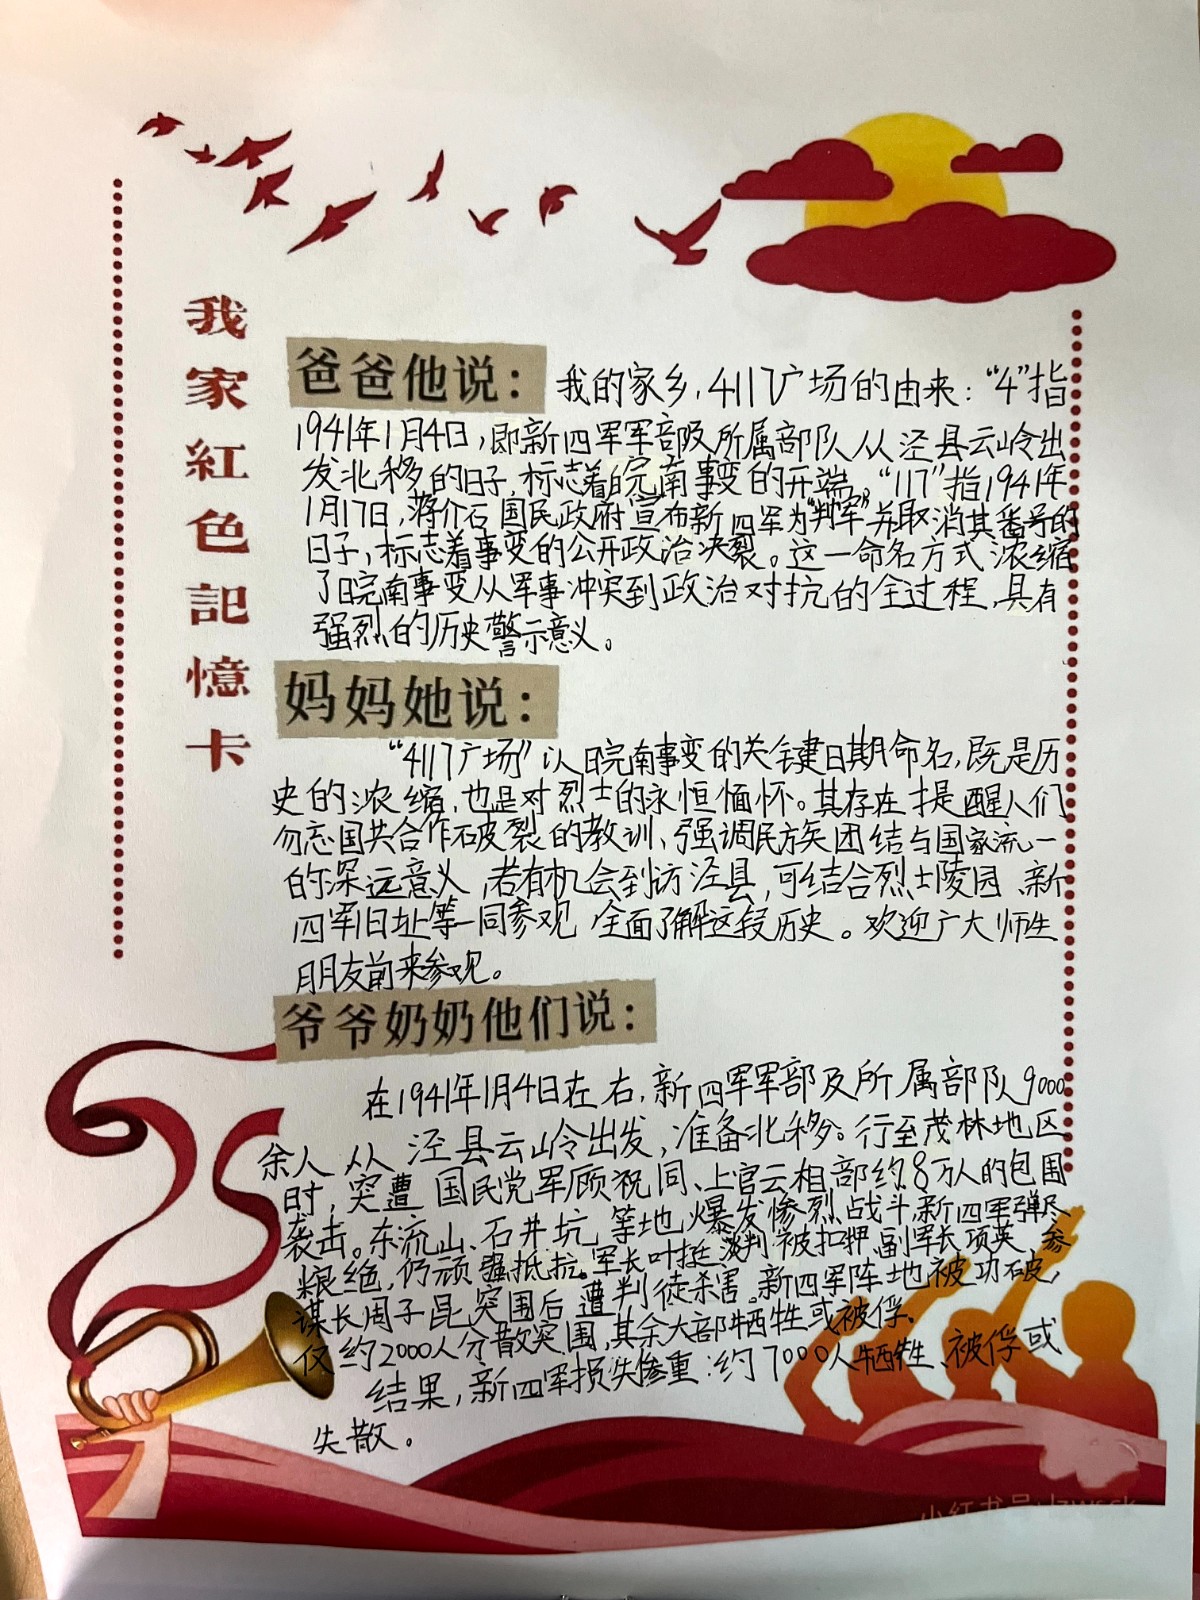 我家紅色記憶卡
爸爸他说：我的家乡，4117广场的由来：“4”指
1941年1月4日，即新四军军部及所属部队从泾县云岭出
发北移的日子，标志着皖南事变的开端。“117”指1941年
1月17日，蒋介石国民政府宣布新四军为“判军”并取消其番号的
日子，标志着事变的公开政治决裂。这一命名方式浓缩
了皖南事变从军事冲突到政治对抗的全过程，具有
强烈的历史警示意义。
妈妈她说：
“4117广场”以皖南事变的关键日期命名，既是历
史的浓缩，也是对烈士的永恒缅怀。其存在提醒人们
勿忘国共合作破裂的教训、强调民族团结与国家流一
的深远意义，若有机会到访泾县，可结合烈士陵园、新
四军旧址等一同参观，全面了解这段历史。欢迎广大师生
朋友前来参观。
爷爷奶奶他们说：
在1941年1月4日左右，新四军军部及所属部队9000
余人从泾县云岭出发，准备北移。行至茂林地区
时，突遭国民党军顾祝同、上官云相部约8万人的包围
袭击。东流山、石井坑等地爆发惨烈战斗，新四军弹尽
粮绝，仍顽强抵抗。军长叶挺谈判被扣押，副军长项英、参
谋长周子昆突围后遭判徒杀害。新四军阵地被功破，
仅约2000人分散突围，其余大部牺牲或被俘。
结果，新四军损失惨重：约7000人牺牲、被俘或
失散。
小红书号: